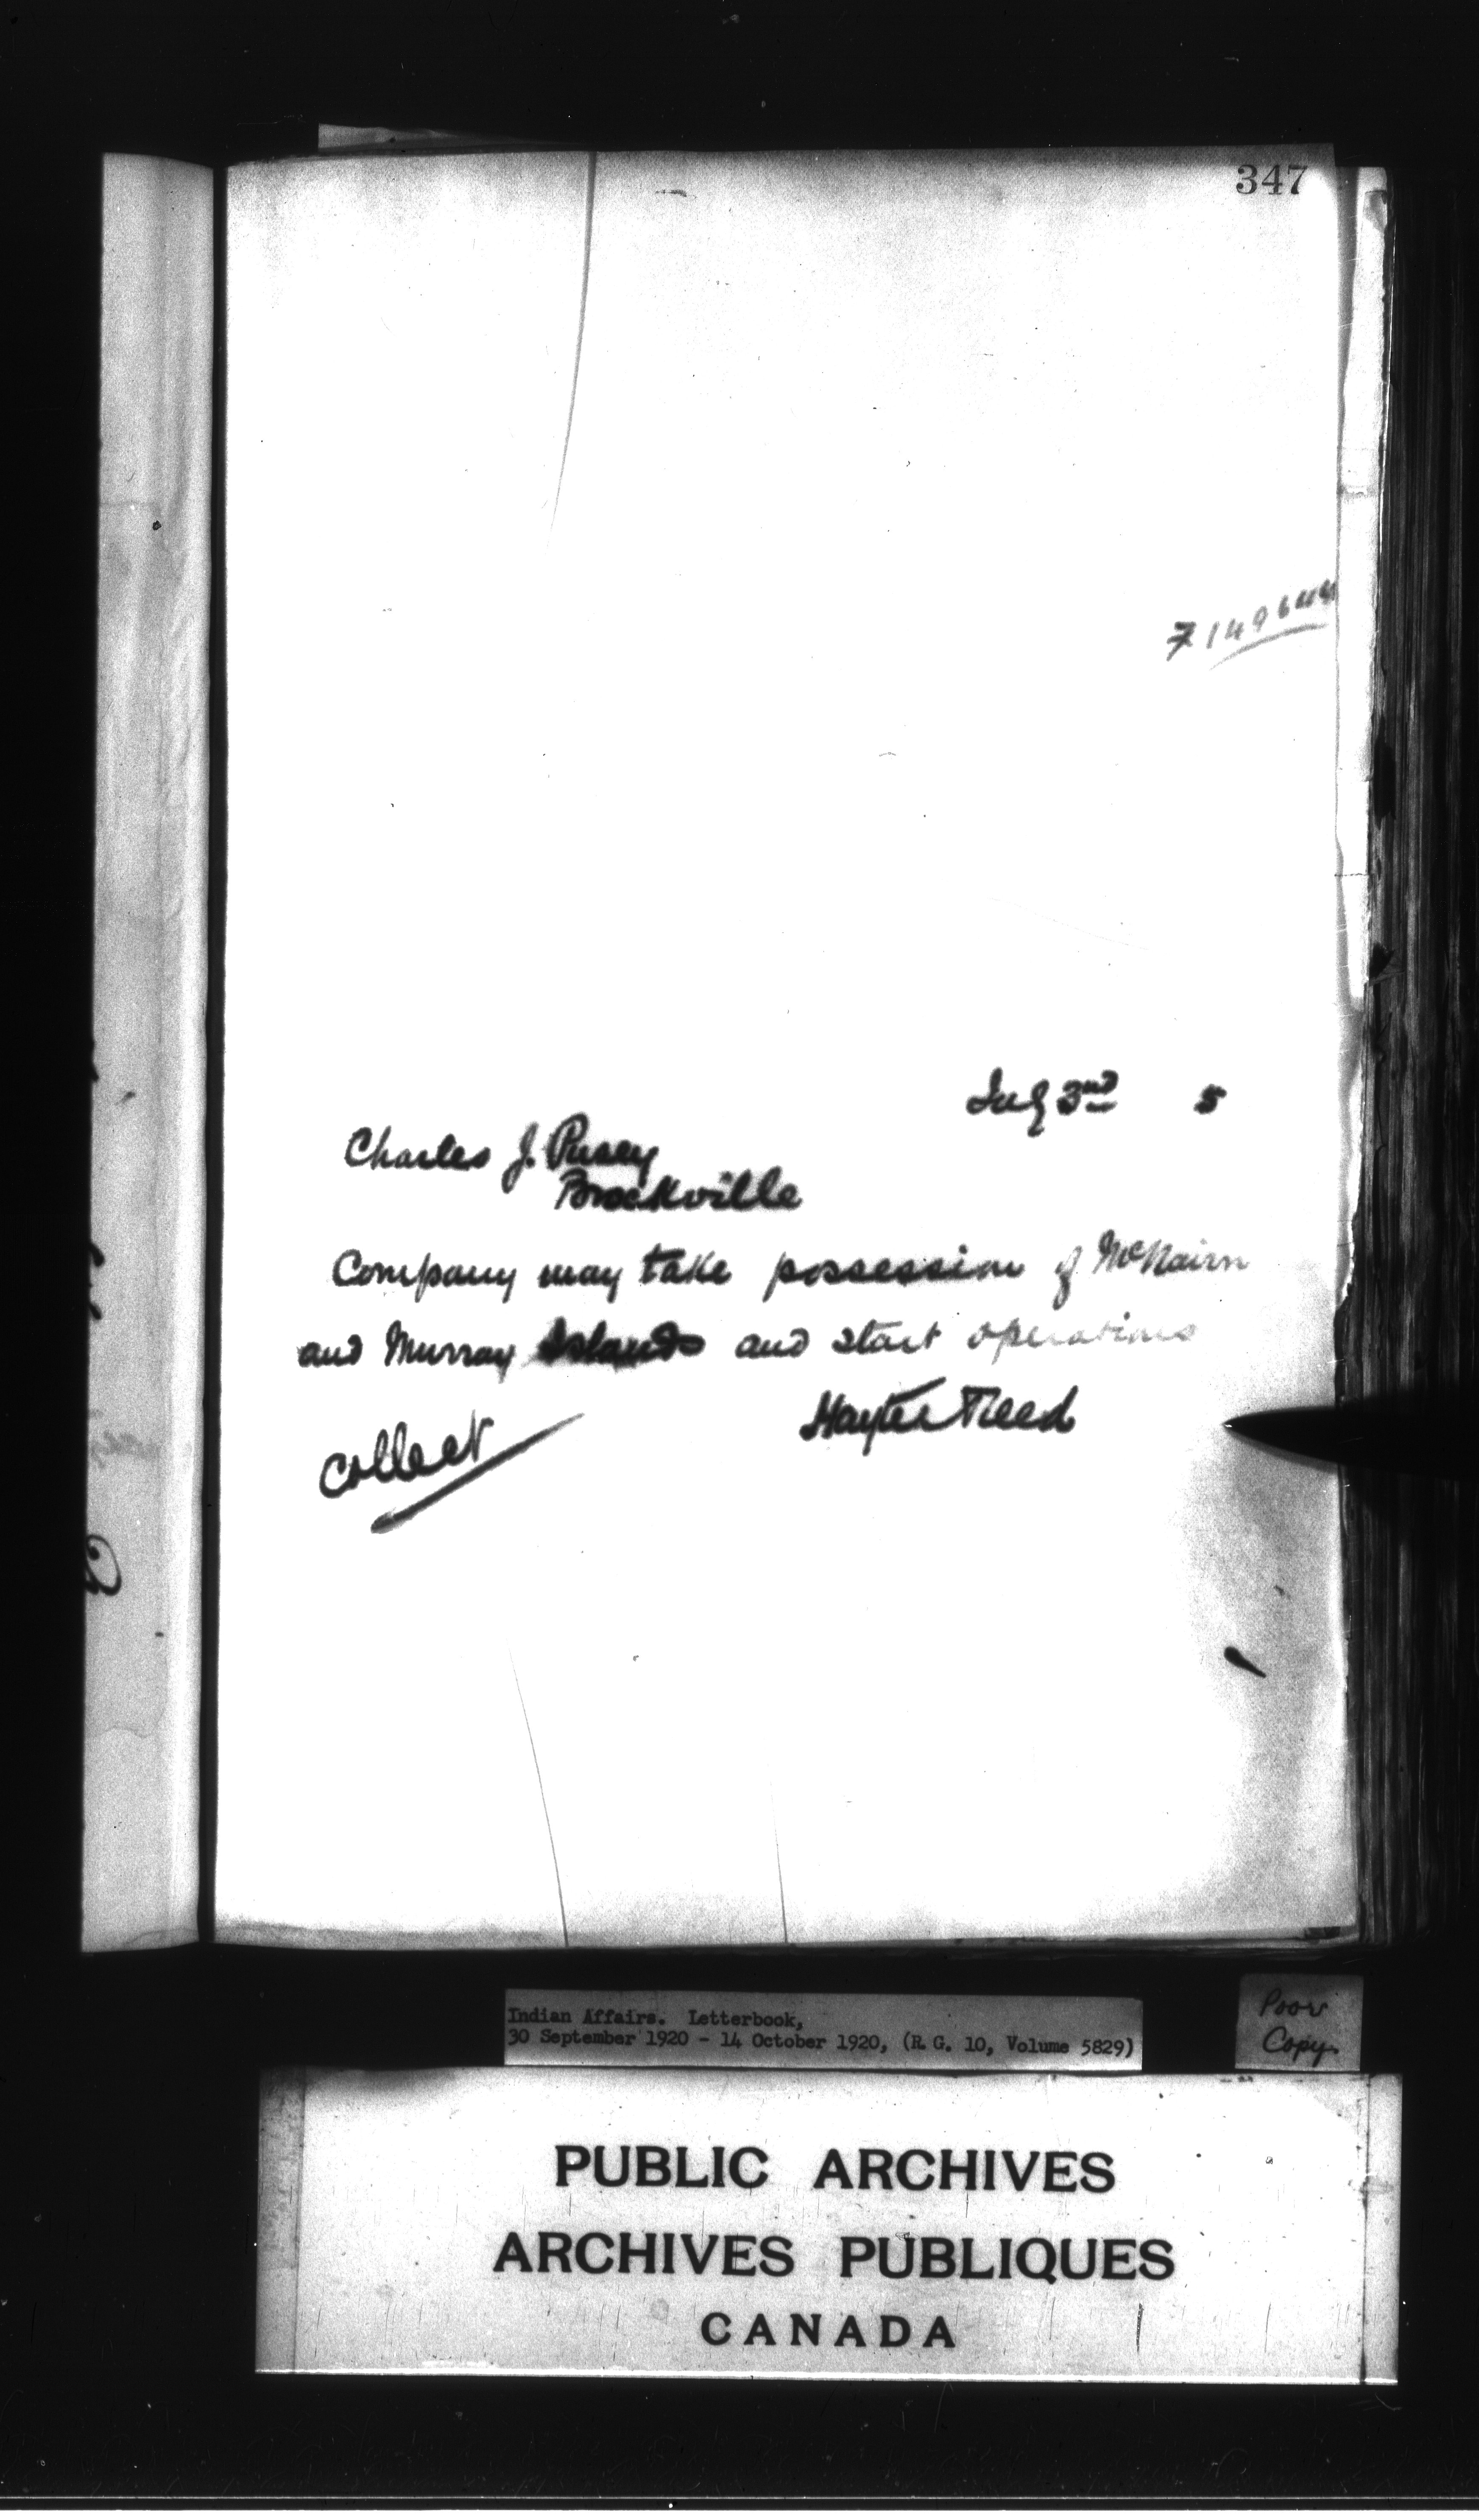 347
July 3nd 5
Charles J. Pusey
Brockville
Company may take possession of McNairn
and Murray Islands and start operations
Hayter Reed
Collect
Indian Affairs. Letterbook,
30 September 1920 - 14 October 1920, (R. G. 10, Volume 5829)
Poor
Copy.
PUBLIC ARCHIVES
ARCHIVES PUBLIQUES
CANADA